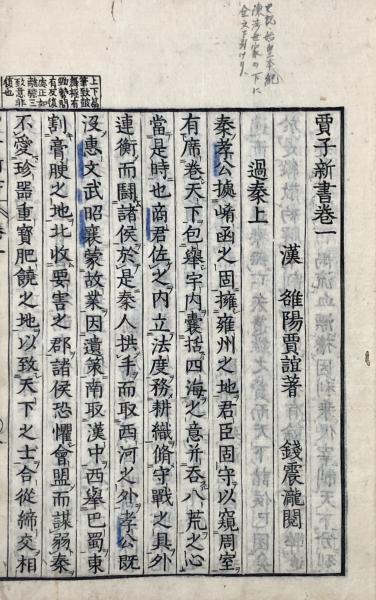 史記始皇本紀
陳渉世家の下に
全文を引けり
有反復
處正如
離騷三
致意非
復也
賈子新書卷一
漢 雒陽賈誼著 錢震瀧閱
過秦上
秦孝公據崤函之固擁雍州之地君臣固守以窺周室
有席卷天下包舉宇內囊括四海之意并吞八荒之心
當是時也商君佐之內立法度務耕織脩守戰之具外
連衡而鬭諸侯於是秦人拱手而取西河之外孝公既
沒惠文武昭襄蒙故業因遺策南取漢中西舉巴蜀東
割膏腴之地北收要害之郡諸侯恐懼會盟而謀弱秦
不愛珍器重寶肥饒之地以致天下之士合從締交相